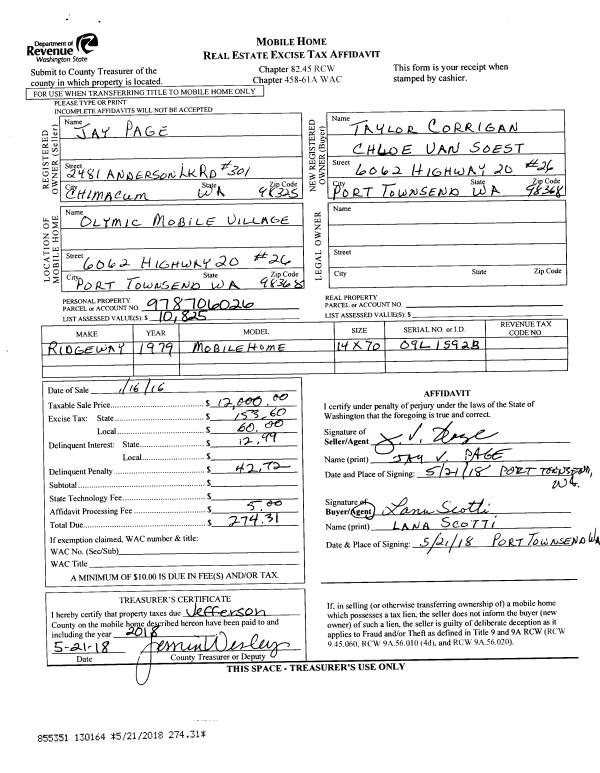 Department of
Revenue
Washington State
MOBILE HOME
REAL ESTATE EXCISE TAX AFFIDAVIT
Submit to County Treasurer of the
county in which property is located.
Chapter 82.45 RCW
Chapter 458-61A WAC
This form is your receipt when
stamped by cashier.
FOR USE WHEN TRANSFERRING TITLE TO MOBILE HOME ONLY
PLEASE TYPE OR PRINT
INCOMPLETE AFFIDAVITS WILL NOT BE ACCEPTED
REGISTERED OWNER (Seller)
Name
JAY PAGE
Street
2481 ANDERSON LK RD #301
City State Zip Code
CHIMACUM WA 98325
NEW REGISTERED OWNER (Buyer)
Name
TAYLOR CORRIGAN
CHLOE VAN SOEST
Street 6062 HIGHWAY 20 #26
City State Zip Code
PORT TOWNSEND WA 98368
LOCATION OF MOBILE HOME
Name
OLYMIC MOBILE VILLAGE
Street
6062 HIGHWAY 20 #26
City State Zip Code
PORT TOWNSEND WA 98368
LEGAL OWNER
Name
Street
City State Zip Code
PERSONAL PROPERTY
PARCEL or ACCOUNT NO. 978706026
LIST ASSESSED VALUE(S): $ 10,825
REAL PROPERTY
PARCEL or ACCOUNT NO.
LIST ASSESSED VALUE(S): $
MAKE YEAR MODEL SIZE SERIAL NO. or I.D. REVENUE TAX CODE NO.
RIDGEWAY 1979 MOBILE HOME 14 X 70 09L 1592B
Date of Sale 1/16/16
Taxable Sale Price $ 12,000.00
Excise Tax: State $ 153.60
Local $ 60.00
Delinquent Interest: State $ 12.99
Local $
Delinquent Penalty $ 42.72
Subtotal $
State Technology Fee $
Affidavit Processing Fee $ 5.00
Total Due $ 274.31
If exemption claimed, WAC number & title:
WAC No. (Sec/Sub)
WAC Title
A MINIMUM OF $10.00 IS DUE IN FEE(S) AND/OR TAX.
AFFIDAVIT
I certify under penalty of perjury under the laws of the State of
Washington that the foregoing is true and correct.
Signature of
Seller/Agent J. V. Page
Name (print) JAY V. PAGE
Date and Place of Signing: 5/21/18 PORT TOWNSEND,
WA.
Signature of
Buyer/Agent Lana Scotti
Name (print) LANA SCOTTI
Date & Place of Signing: 5/21/18 PORT TOWNSEND WA
TREASURER'S CERTIFICATE
I hereby certify that property taxes due Jefferson
County on the mobile home described hereon have been paid to and
including the year 2018
5-21-18
Date County Treasurer or Deputy
If, in selling (or otherwise transferring ownership of) a mobile home
which possesses a tax lien, the seller does not inform the buyer (new
owner) of such a lien, the seller is guilty of deliberate deception as it
applies to Fraud and/or Theft as defined in Title 9 and 9A RCW (RCW
9.45.060, RCW 9A.56.010 (4d), and RCW 9A.56.020).
THIS SPACE - TREASURER'S USE ONLY
855351 130164 *5/21/2018 274.31*